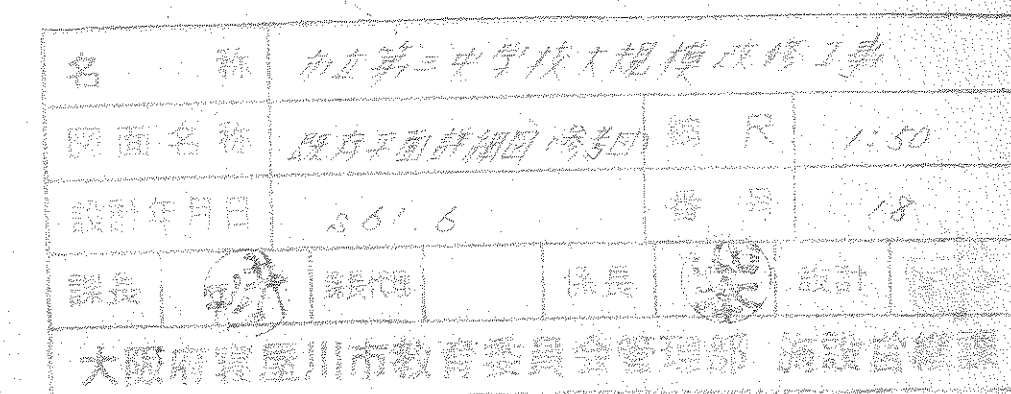 名称 市立第三中学校大規模改修工事
図面名称 既存平面詳細図(参考図) 縮尺 1:50
設計年月日 S61.6 番号 18
課長 課長代理 係長 設計
大阪府寝屋川市教育委員会管理部 施設営繕課